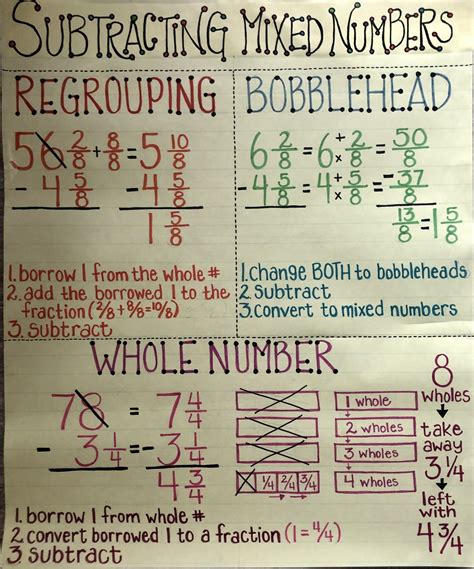 SUBTRACTING MIXED NUMBERS
REGROUPING
5 6 2/8 + 8/8 = 5 10/8
- 4 5/8 - 4 5/8
1 5/8
1. borrow 1 from the whole #
2. add the borrowed 1 to the
fraction (2/8 + 8/8 = 10/8)
3. subtract
BOBBLEHEAD
6 2/8 = 6 + 2 x 8 = 50/8
- 4 5/8 = 4 + 5 x 8 = - 37/8
13/8 = 1 5/8
1. change BOTH to bobbleheads
2. subtract
3. convert to mixed numbers
WHOLE NUMBER
7 8 = 7 4/4
- 3 1/4 = - 3 1/4
4 3/4
1. borrow 1 from whole #
2. convert borrowed 1 to a fraction (1 = 4/4)
3. subtract
1/4 2/4 3/4
1 whole
2 wholes
3 wholes
4 wholes
8
wholes
take
away
3 1/4
left
with
4 3/4